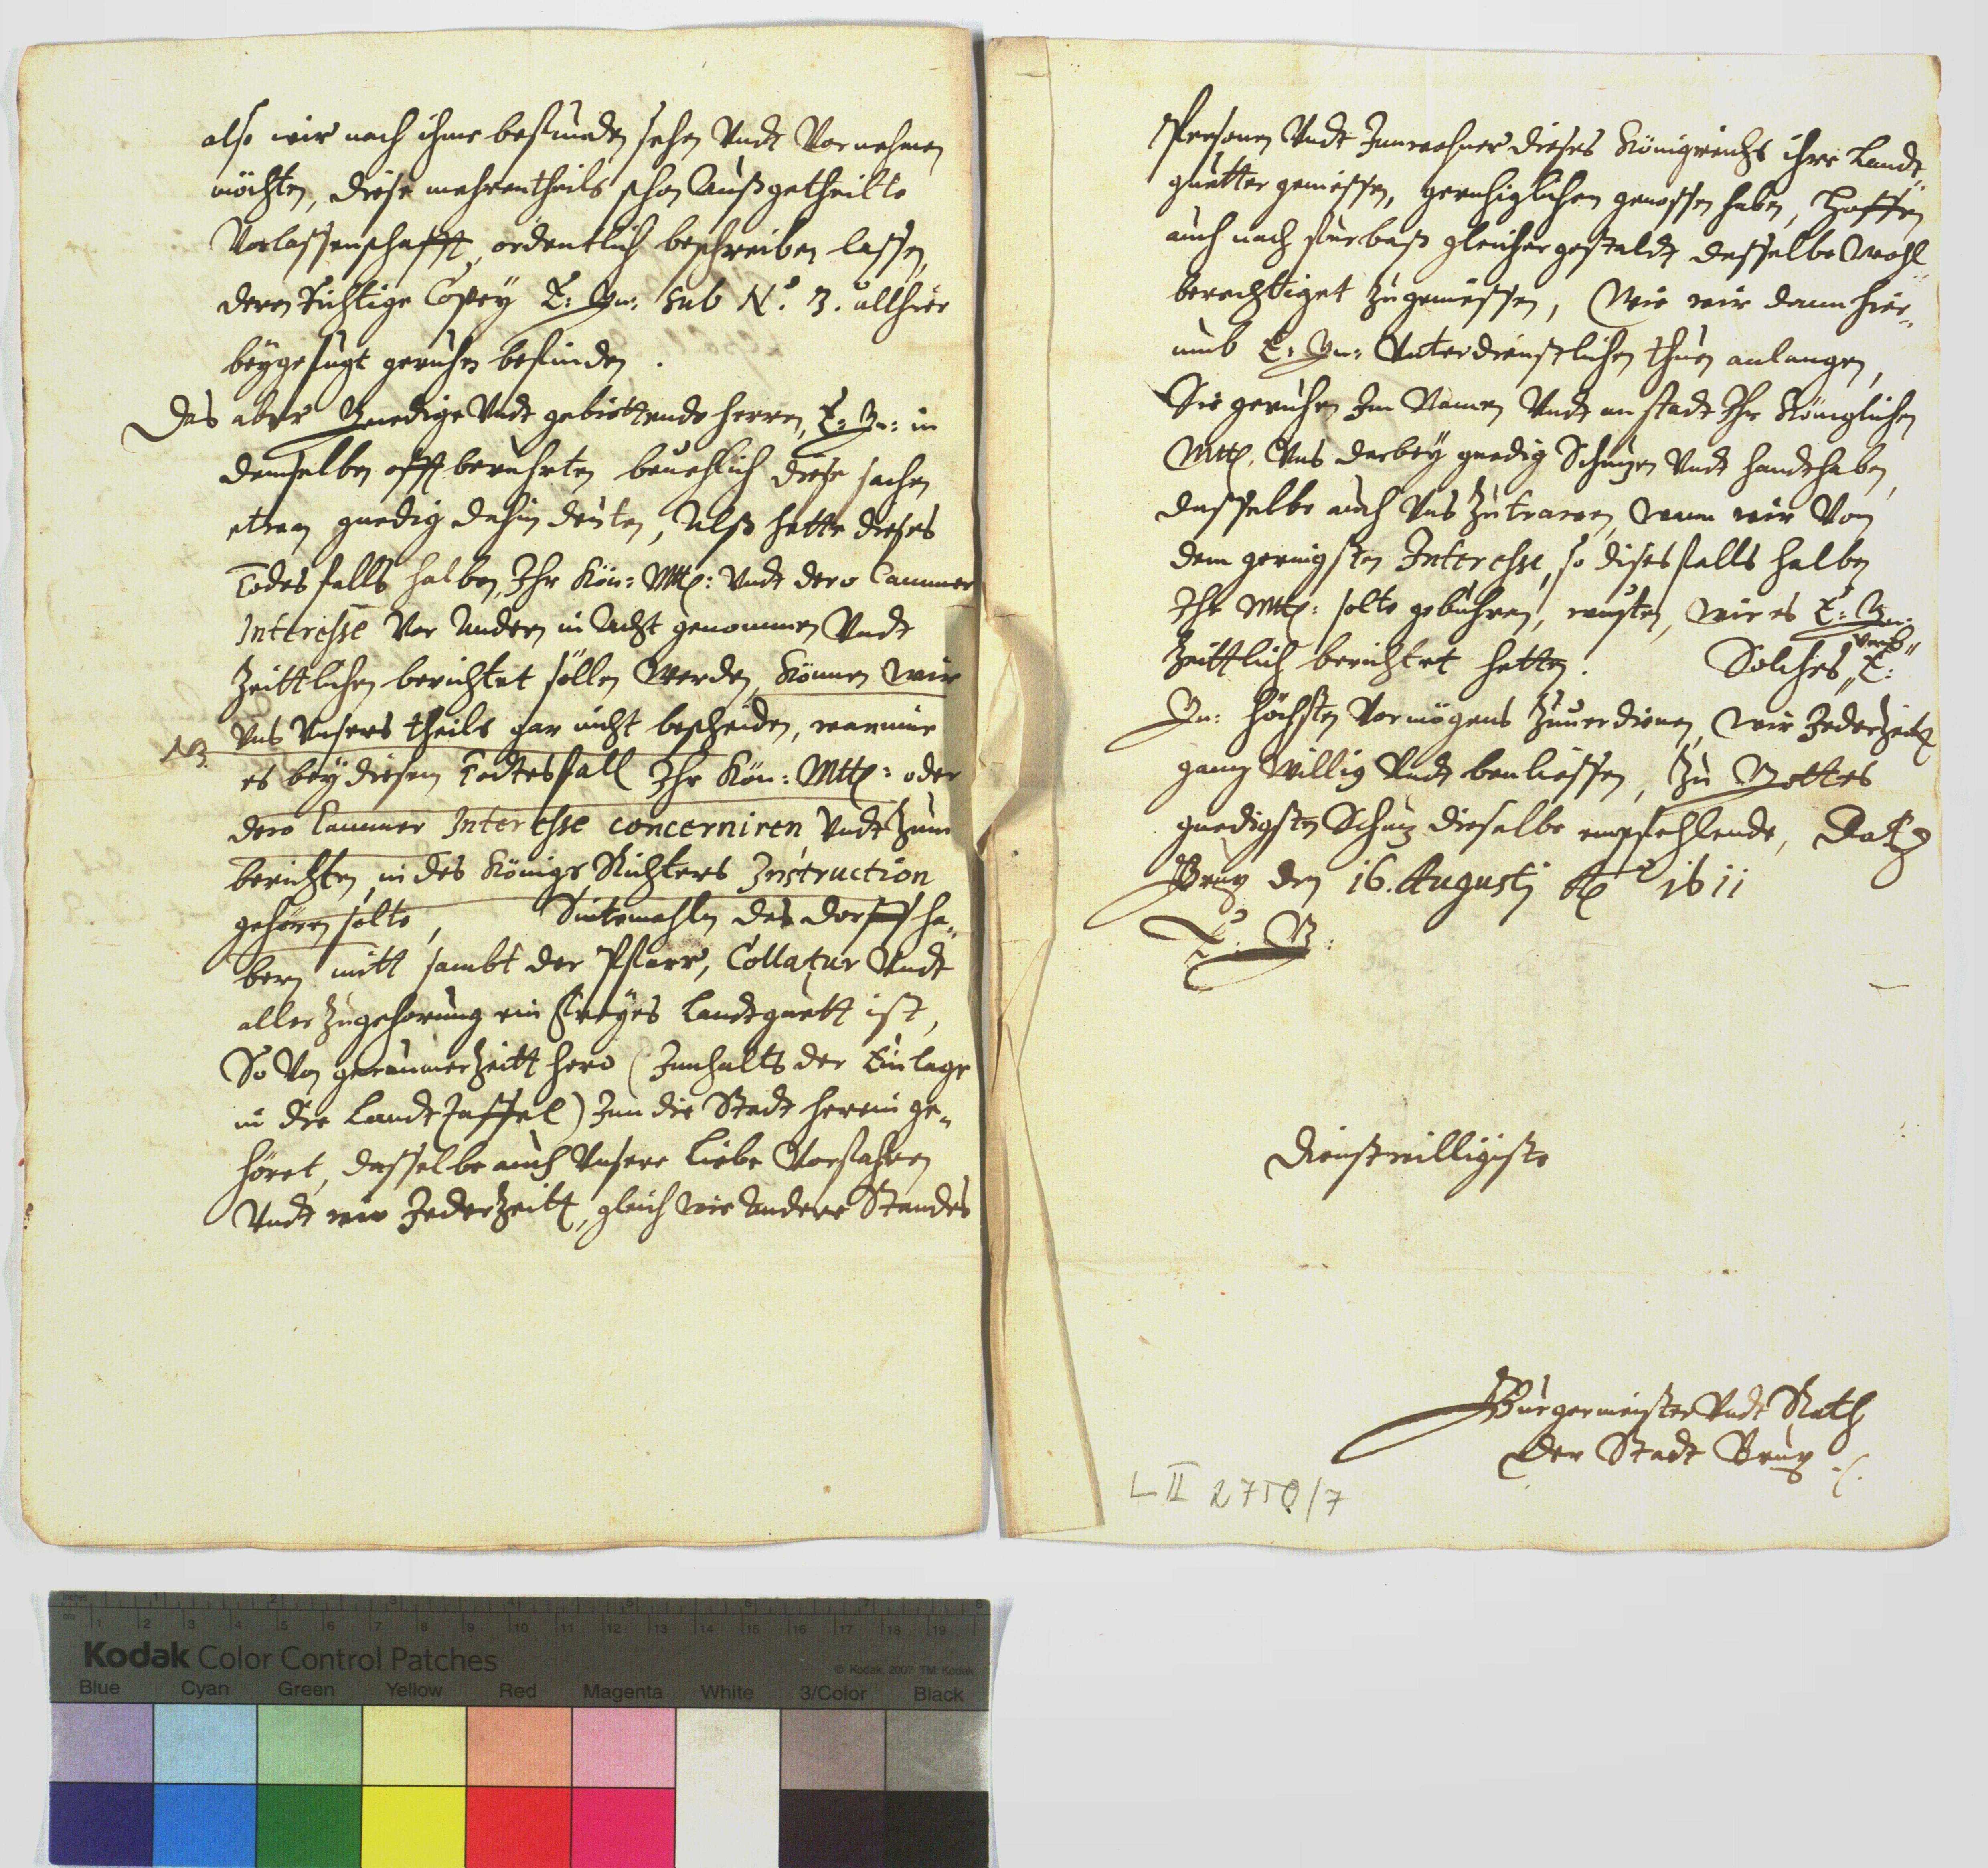 also wir nach ihme befinden sehen Vndt Vornehmen
möchten, diese mehrentheils schon Außgetheilte
Verlassenschafft, ordentlich beschreiben lassen,
deren richtige Copey E: Gn: sub N.° 3. allhier
beÿgefügt geruhen befinden.
Das aber Gnedige Vndt gebiettende Herren, E: Gn: in
demselben offt berührten beuehlich diese sachen
etwan gnedig dahin deuten, Alß hette dieses
Todesfalls halben, Ihr Kön: Mtt: Vndt dero Cammer
Interesse Vor Andern in Acht genommen Vndt
Zeittlichen berichtet söllen Werden, Können wir
Vns Vnsers theils gar nicht bescheiden, warinne
NB.
es beÿ diesem Todtesfall Ihr Kön: Mtt: oder
dero Cammer Interesse concerniren, Vndt Zum
berichten, in des Königs Richters Instruction
gehören solte, Sintemahln das dorff ha„
bern mitt sambt der Pfarr, Collatur Vndt
aller Zugehorung ein freÿes Landtguett ist,
So Von geraumer Zeitt hero (Innhalts der Einlage
in die Landt Taffel) Inn die Stadt herein ge„
höret, dasselbe auch Vnsere Liebe Vorfahren
Vndt wir Jederzeitt, gleich wie Andere Standes
Personen Vndt Innwohner dieses Königreichs ihre Landt„
guetter geniessen, geruhiglichen genossen haben, Hoffen
auch nach fürbas gleicher gestaldt dasselbe Wohl„
berechtiget Zugeniessen, Wie wir dann hier„
umb E: Gn: Vnterdienstlichen thuen anlangen,
Sie geruhen Im Namen Vndt an stadt Ihr Königlichen
Mtt: Vns darbeÿ gnedig Schuzen Vndt handthaben,
dasselbe auch Vns Zutrawen, wann wir Von
dem geringsten Interesse, so dises falls halben
Ihr Mtt: solte gebühren, wusten, wir es E: Gn:
Zeittlich berichtet hetten. Solches „ E:
vmb „
Gn: höchsten Vermögens Zuuerdienen, wir Jederzeitt
gantz Willig Vndt beuliessen, Zu Gottes
gnedigsten Schuz dieselbe empfehlende, Dat:
Brüx den 16. Augusti A° 1611
E: G:
Dienstwilligiste
Bürgermeister Vndt Rath
der Stadt Brüx
L II 2750/7
Kodak Color Control Patches
© Kodak, 2007 TM: Kodak
Blue Cyan Green Yellow Red Magenta White 3/Color Black